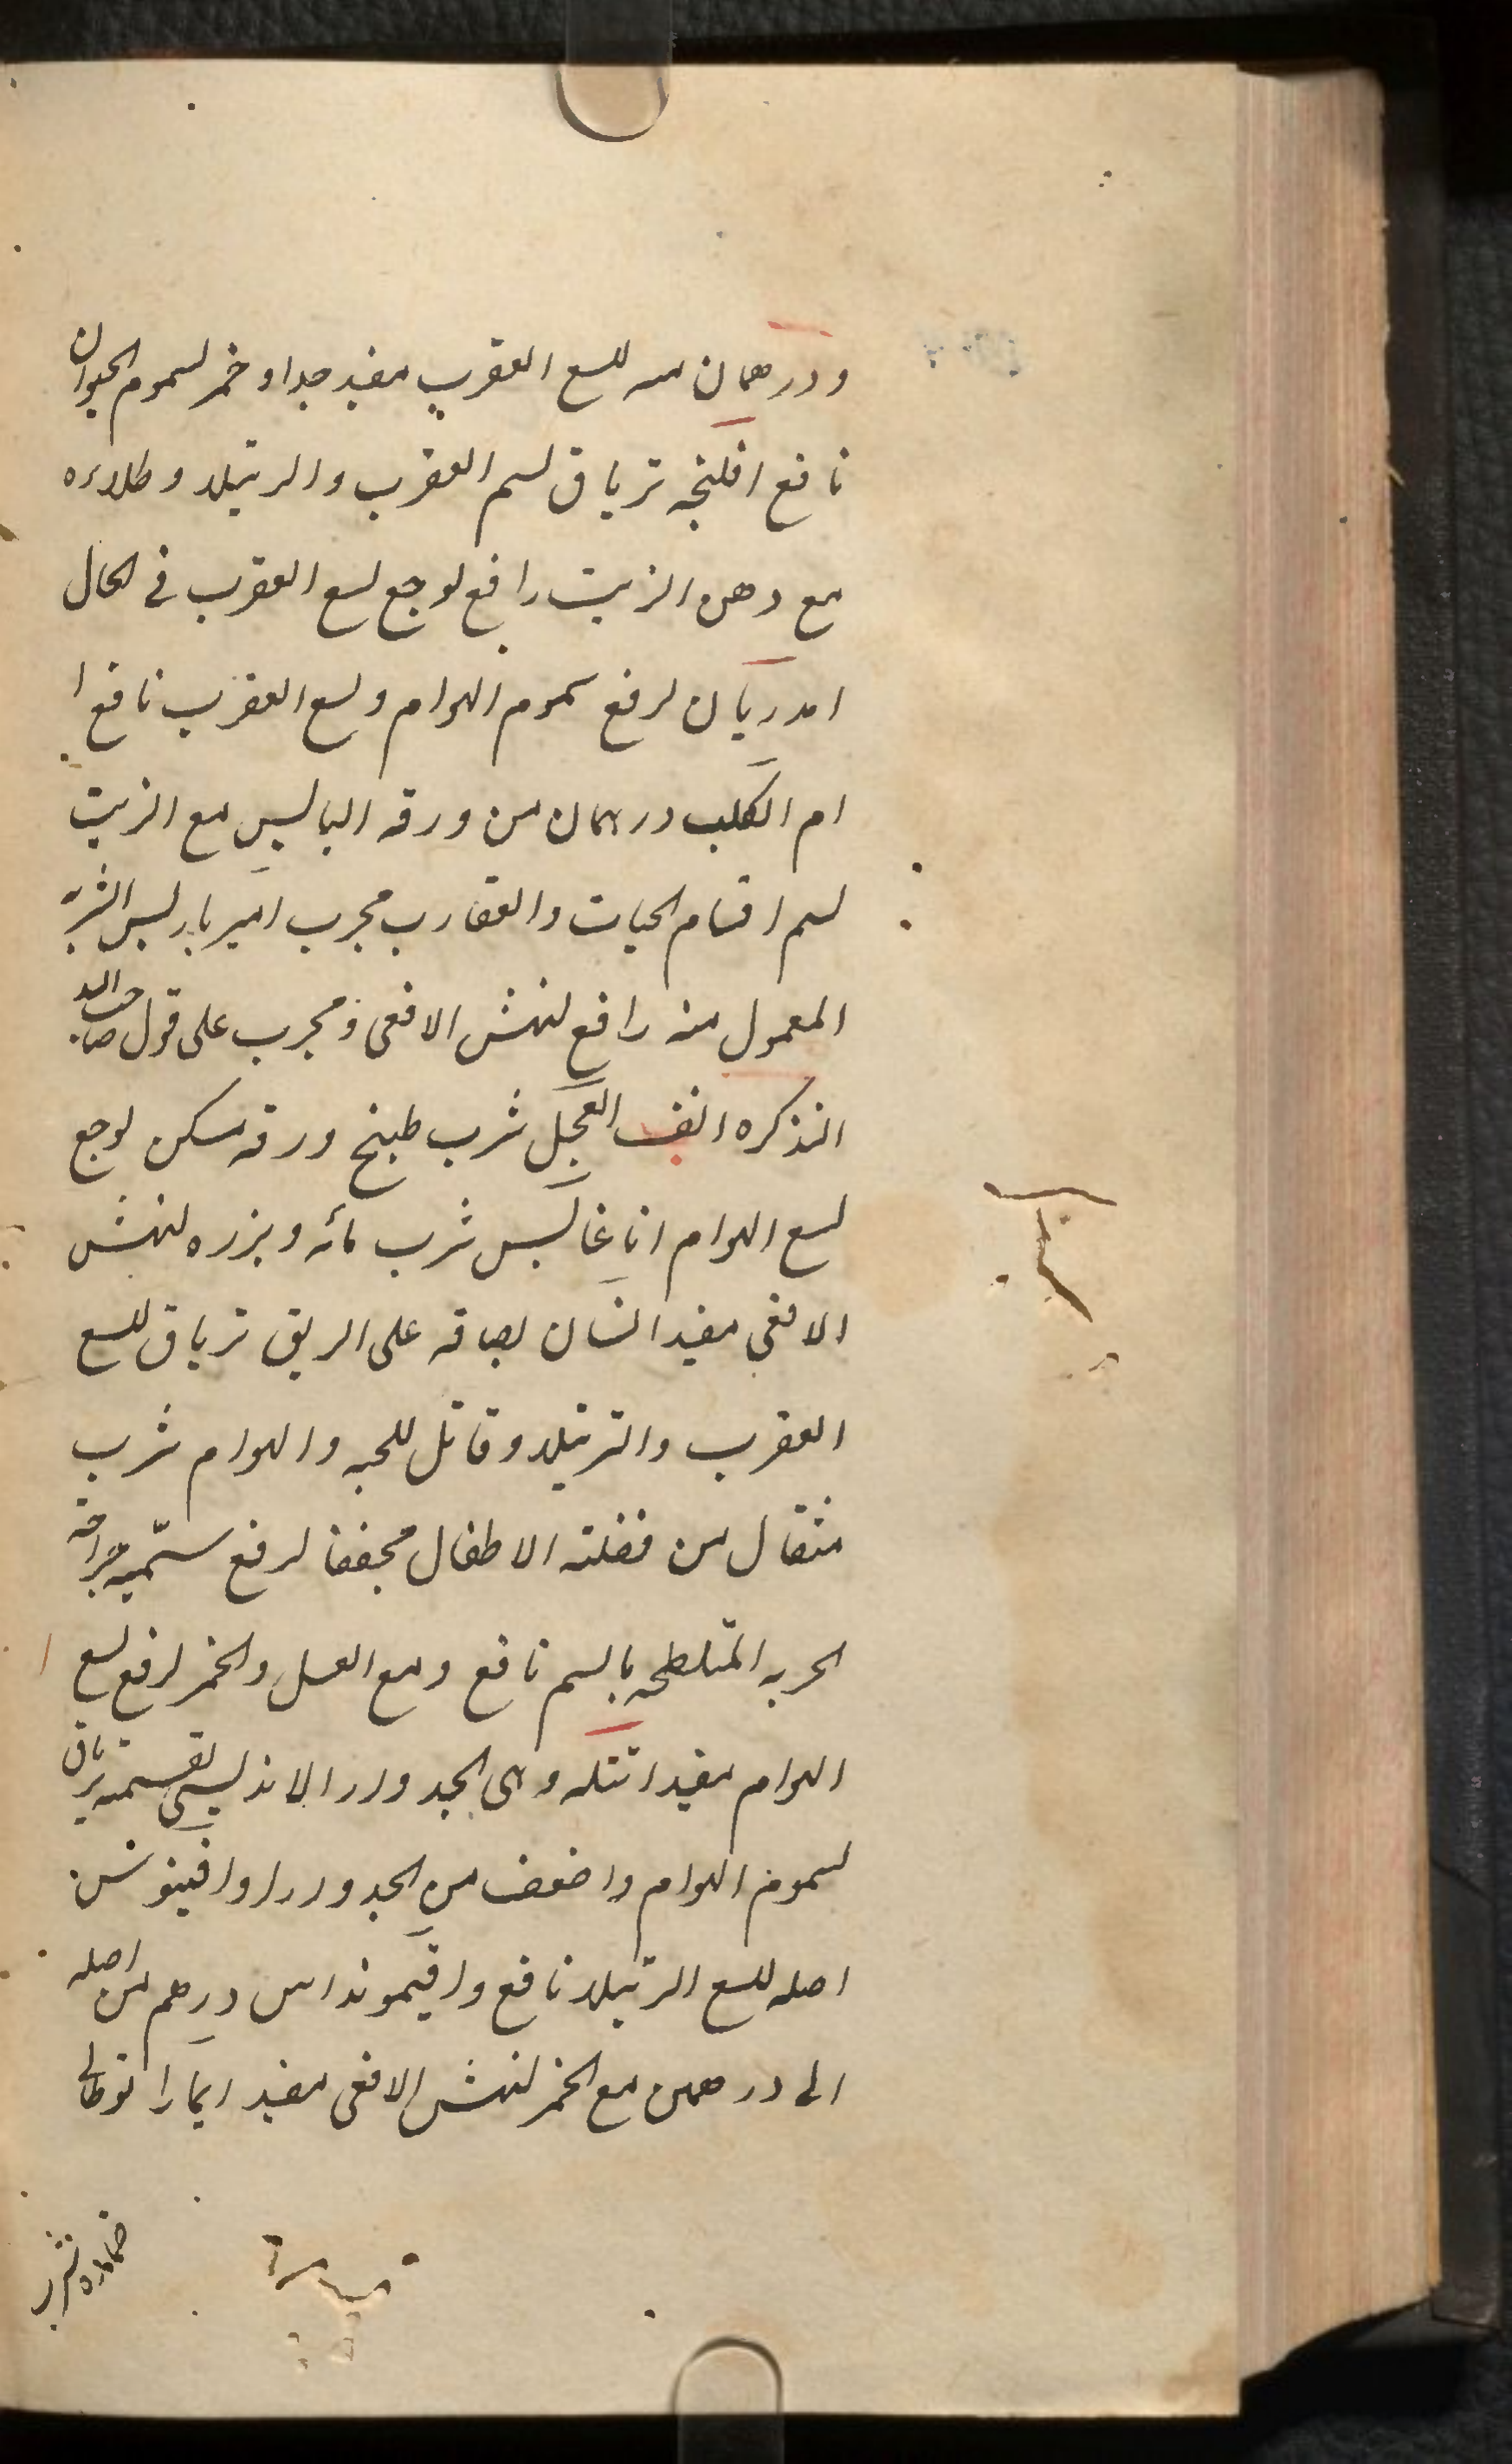 ودرهمان منه للسع العقرب مفيد جدا وخمر لسموم الحيوان
نافع افلنجه ترياق لسم العقرب والرتيلا وطلاءه
مع دهن الزيت رافع لوجع لسع العقرب فى الحال
امدريان لرفع سموم الهوام ولسع العقرب نافع ا
ام الكلب درهمان من ورقه اليابس مع الزيت
لسم اقسام الحيات والعقارب مجرب امير باريس الشربه
المعمول منه رافع لنهش الافعى ومجرب على قول صاحب
التذكره انف العجل شرب طبيخ ورقه مسكن لوجع
لسع الهوام اناغاليس شرب مائه وبزره لنهش
الافعى مفيد انسان بصاقه على الريق ترياق للسع
العقرب والرتيلا وقاتل للحيه والهوام شرب
مثقال من فضلته الاطفال مجففا لرفع سميه جراحه
الحربه المتلطخه بالسم نافع ومع العسل والخمر لرفع لسع
الهوام مفيد انتله وهى الجدوار الاندلسى بقسميه ترياق
لسموم الهوام واضعف من الجدوار اوافينوس
اصله للسع الرتيلا نافع وافيمونداس درهم من اصله
الى درهمين مع الخمر لنهش الافعى مفيد ايمارانوطالى
ضماده وشربه